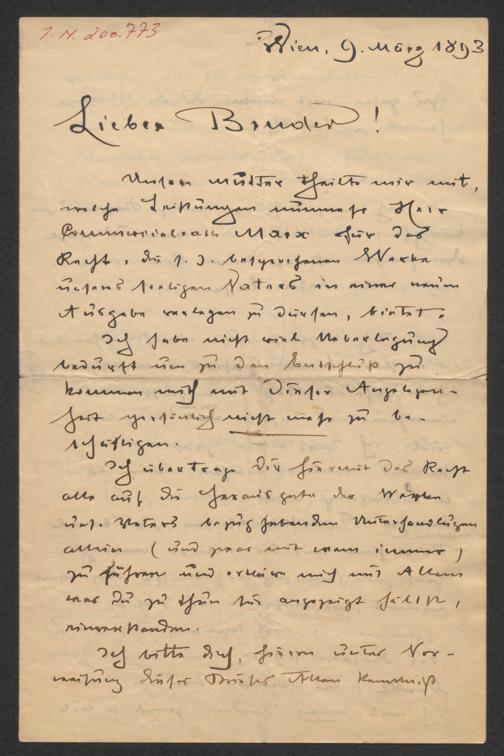 I. N. 200.773
Wien, 9. März 1893
Lieber Bruder!
Unsere Mutter theilte mir mit,
welche Leistungen nunmehr Herr
Commercialrath Marx für das
Recht, die s. Z. besprochenen Werke
unseres seeligen Vaters in einer neuen
Ausgabe verlegen zu dürfen, bietet.
Ich habe nicht viel Ueberlegung
bedurft um zu dem Entschluß zu
kommen mich mit dieser Angelegen-
heit persönlich nicht mehr zu be-
schäftigen.
Ich übertrage Dir hiermit das Recht
alle auf die Herausgabe der Werke
uns. Vaters bezughabenden Unterhandlungen
allein (und zwar mit wem immer)
zu führen und erkläre mich mit Allem
was Du zu thun für angezeigt hältst,
einverstanden.
Ich bitte Dich, hievon unter Vor-
weisung dieses Briefes Allen Kenntniß